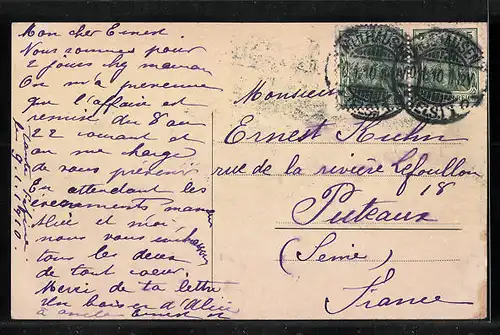 Mon cher Ernest.
Nous sommes pour
2 jours chez maman
On m'a prévenue
que l'affaire est
remise du 8 au
22 courant et
on me charge
de vous prévenir
En attendant les
évènements maman
Alice et moi,
nous vous embrassons
tous les deux
de tout cœur.
Merci de ta lettre
Un baiser d'Alice
à Ernest et
9.1.1910.
Monsieur
Ernest Kuhn
rue de la rivière Lefoullon
18
Puteaux
(Seine)
France
MÜLHAUSEN